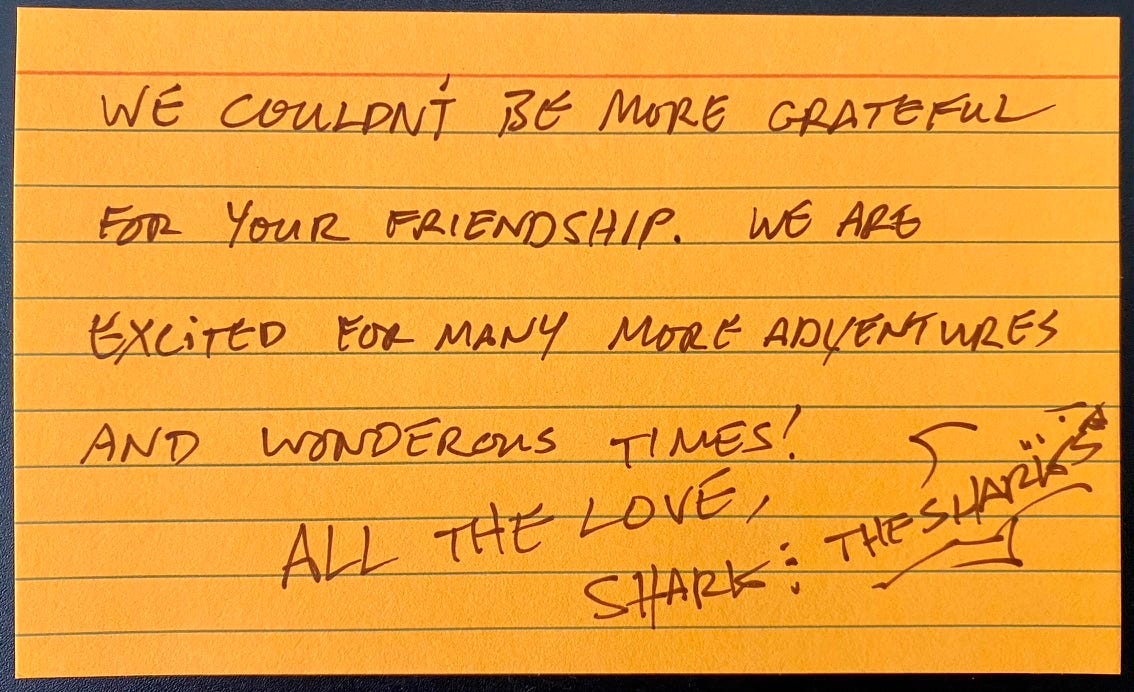 WE COULDN'T BE MORE GRATEFUL
FOR YOUR FRIENDSHIP. WE ARE
EXCITED FOR MANY MORE ADVENTURES
AND WONDEROUS TIMES!
ALL THE LOVE,
SHARK: THE SHARKS